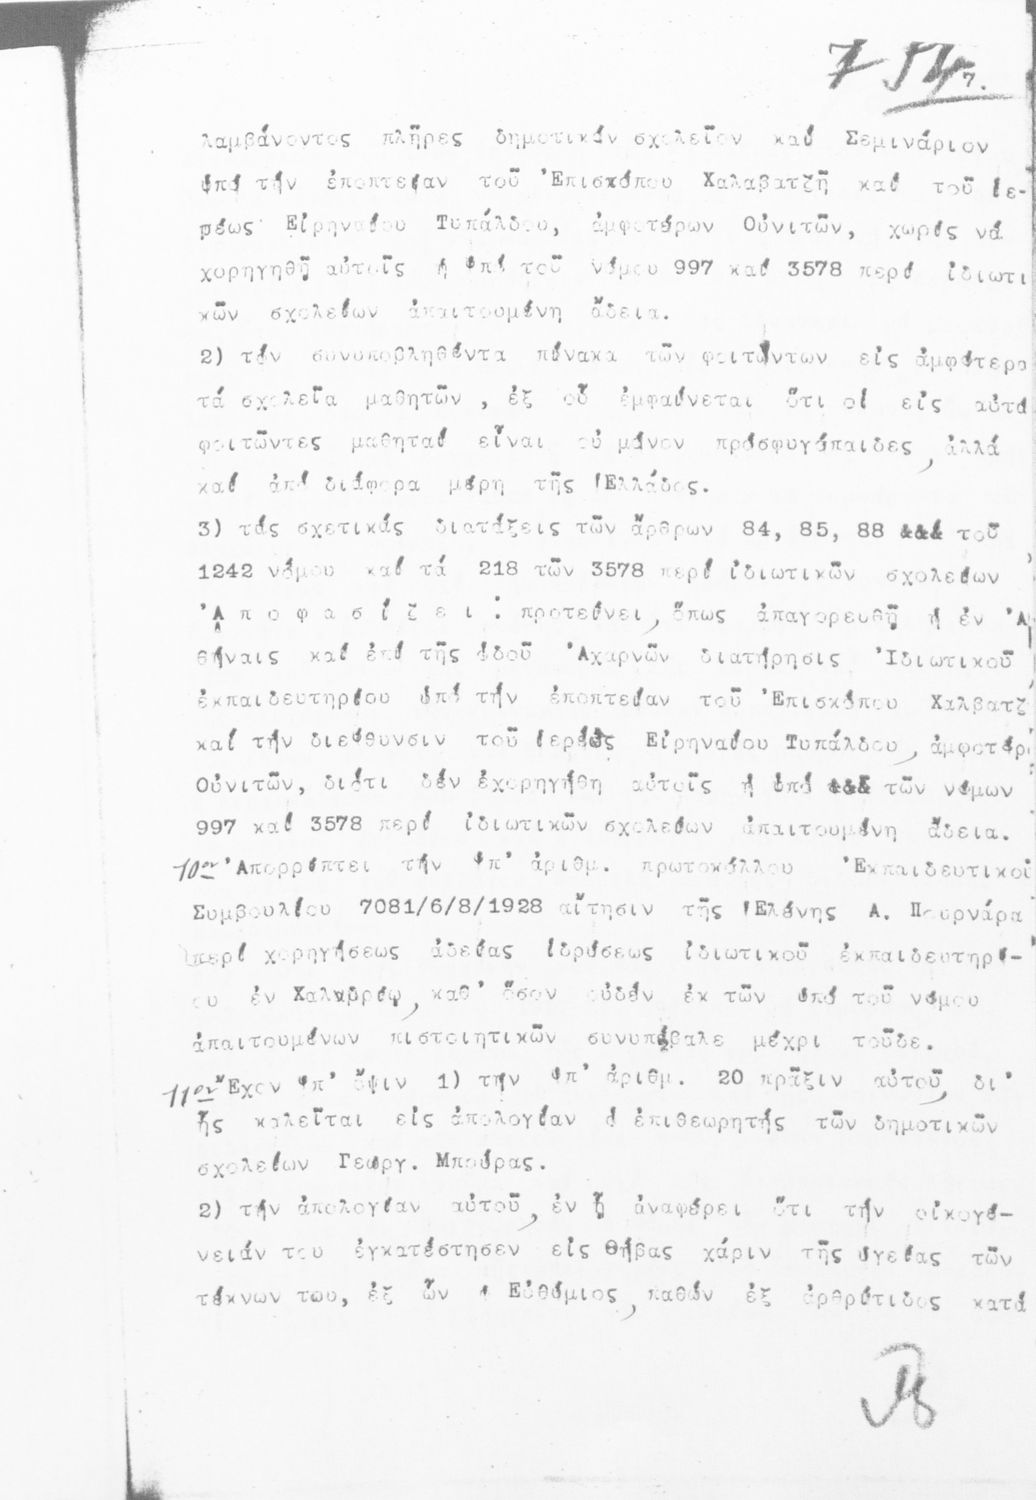 7.
λαμβάνοντος πλῆρες δημοτικόν σχολεῖον καί Σεμινάριον
ὑπό τήν ἐποπτείαν τοῦ Ἐπισκόπου Χαλαβατζῆ καί τοῦ ἱε-
ρέως Εἰρηναίου Τυπάλδου, ἀμφοτέρων Οὐνιτῶν, χωρίς νά
χορηγηθῇ αὐτοῖς ἡ ὑπό τοῦ νόμου 997 καί 3578 περί ἰδιωτι
κῶν σχολείων ἀπαιτουμένη ἄδεια.
2) τόν συνυποβληθέντα πίνακα τῶν φοιτώντων εἰς ἀμφότερα
τά σχολεῖα μαθητῶν, ἐξ οὗ ἐμφαίνεται ὅτι οἱ εἰς αὐτά
φοιτῶντες μαθηταί εἶναι οὐ μόνον πρόσφυγόπαιδες, ἀλλά
καί ἀπό διάφορα μέρη τῆς Ἑλλάδος.
3) τάς σχετικάς διατάξεις τῶν ἄρθρων 84, 85, 88 τοῦ
1242 νόμου καί τά 218 τῶν 3578 περί ἰδιωτικῶν σχολείων
Ἀ π ο φ α σ ί ζ ε ι : προτείνει, ὅπως ἀπαγορευθῇ ἡ ἐν Ἀ
θήναις καί ἐπί τῆς ὁδοῦ Ἀχαρνῶν διατήρησις Ἰδιωτικοῦ
ἐκπαιδευτηρίου ὑπό τήν ἐποπτείαν τοῦ Ἐπισκόπου Χαλβατζ
καί τήν διεύθυνσιν τοῦ ἱερέως Εἰρηναίου Τυπάλδου, ἀμφοτέρ
Οὐνιτῶν, διότι δέν ἐχορηγήθη αὐτοῖς ἡ ὑπό τῶν νόμων
997 καί 3578 περί ἰδιωτικῶν σχολείων ἀπαιτουμένη ἄδεια.
10ον Ἀπορρίπτει τήν ὑπ' ἀριθμ. πρωτοκόλλου Ἐκπαιδευτικοῦ
Συμβουλίου 7081/6/8/1928 αἴτησιν τῆς Ἑλένης Α. Πουρνάρα
περί χορηγήσεως ἀδείας ἱδρύσεως ἰδιωτικοῦ ἐκπαιδευτηρί-
ου ἐν Χαλανδρίῳ, καθ' ὅσον οὐδέν ἐκ τῶν ὑπό τοῦ νόμου
ἀπαιτουμένων πιστοιητικῶν συνυπέβαλε μέχρι τοῦδε.
11ον Ἔχον ὑπ' ὄψιν 1) την ὑπ' ἀριθμ. 20 πρᾶξιν αὐτοῦ, δι'
ἧς καλεῖται εἰς ἀπολογίαν ὁ ἐπιθεωρητής τῶν δημοτικῶν
σχολείων Γεωργ. Μπούρας.
2) τήν ἀπολογίαν αὐτοῦ, ἐν ᾗ ἀναφέρει ὅτι τήν οἰκογέ-
νειάν του ἐγκατέστησεν εἰς Θήβας χάριν τῆς ὑγείας τῶν
τέκνων του, ἐξ ὧν ὁ Εὐθύμιος, παθών ἐξ ἀρθρίτιδος κατά